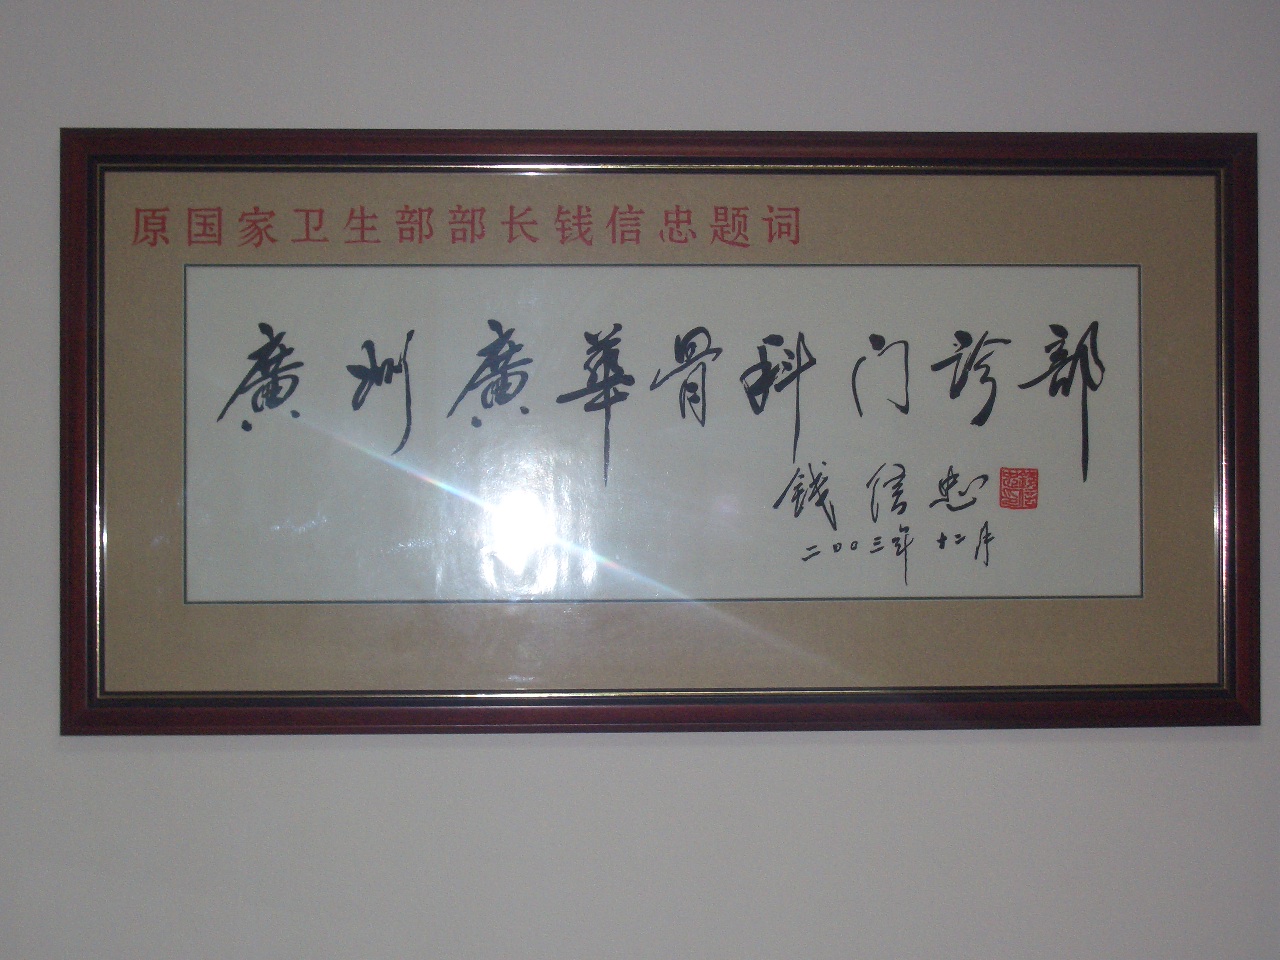 原国家卫生部部长钱信忠题词
廣州廣華骨科门诊部
钱信忠
二00三年十二月